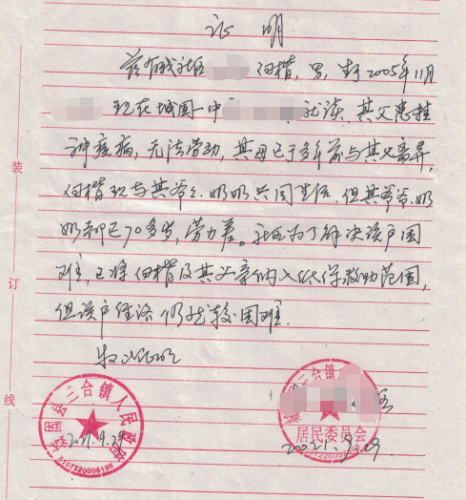 证明
兹有我社区 何楷，男，生于2005年11月
现在城固一中 就读，其父患精
神疾病，无法劳动，其母已于多年前与其父离异，
何楷现与其爷爷、奶奶共同生活，但其爷爷、奶
奶都已70多岁，劳力差。社区为了解决该户困
难，已将何楷及其父亲纳入低保救助范围，
但该户经济仍然较困难。
特此证明
装
订
线
城固县三合镇人民政府
2021.9.29
居民委员会
2021.9.29